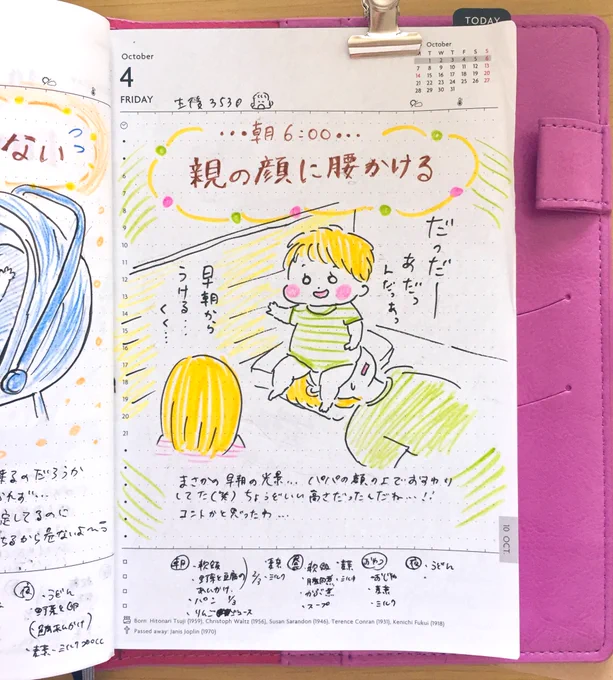 TODAY
October
4
FRIDAY
October
M T W T F S S
1 2 3 4 5 6
7 8 9 10 11 12 13
14 15 16 17 18 19 20
21 22 23 24 25 26 27
28 29 30 31
•••朝 6:00•••
親の顔に腰かける
ない
だっだー
あだっ
んだっあっ
早朝から
うける…
くく…
6
7
8
9
10
11
12
13
14
15
16
17
18
19
20
21
まさかの早朝の光景… パパの顔の上でおすわり
してた(笑) ちょうどいい高さだったんだね…!!
コントかと思ったわ…
来るのだろうか
定してるのに
ちるから危ないよ〜
朝 ・軟飯
・野菜と豆腐の
あんかけ
・パン 1/3
・りんごジュース
・ミルク
昼 ・軟飯
・ミルク
・スープ
おやつ
・ミルク
夜 ・うどん
夜 ・うどん
10 OCT
Born: Hitonari Tsuji (1959), Christoph Waltz (1956), Susan Sarandon (1946), Terence Conran (1931), Kenichi Fukui (1918)
Passed away: Janis Joplin (1970)